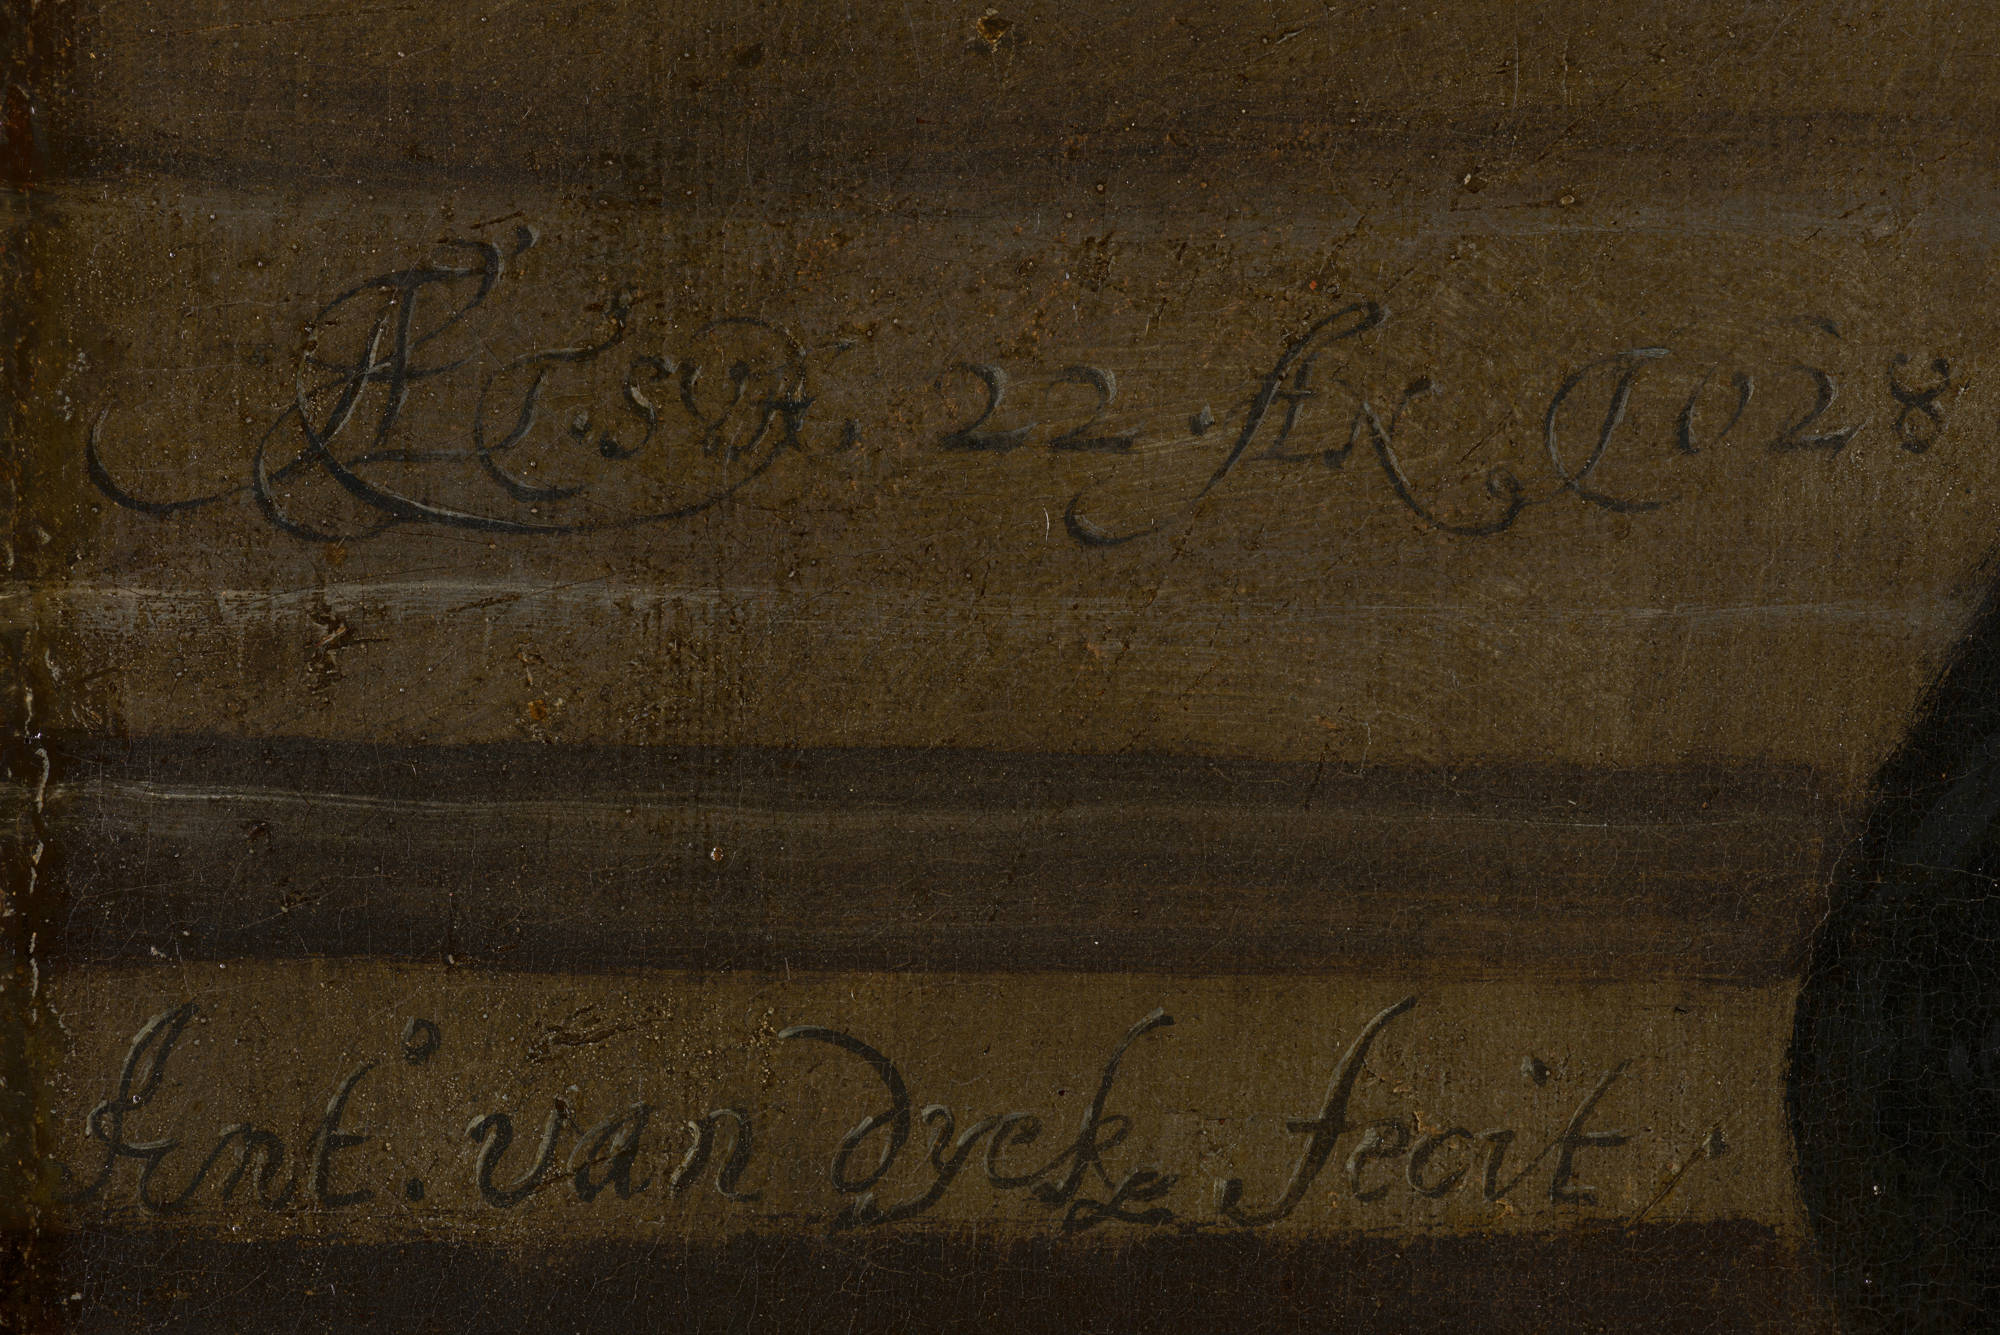 ÆT. SVÆ. 22. AN 1628
Ant.° van dyck fecit